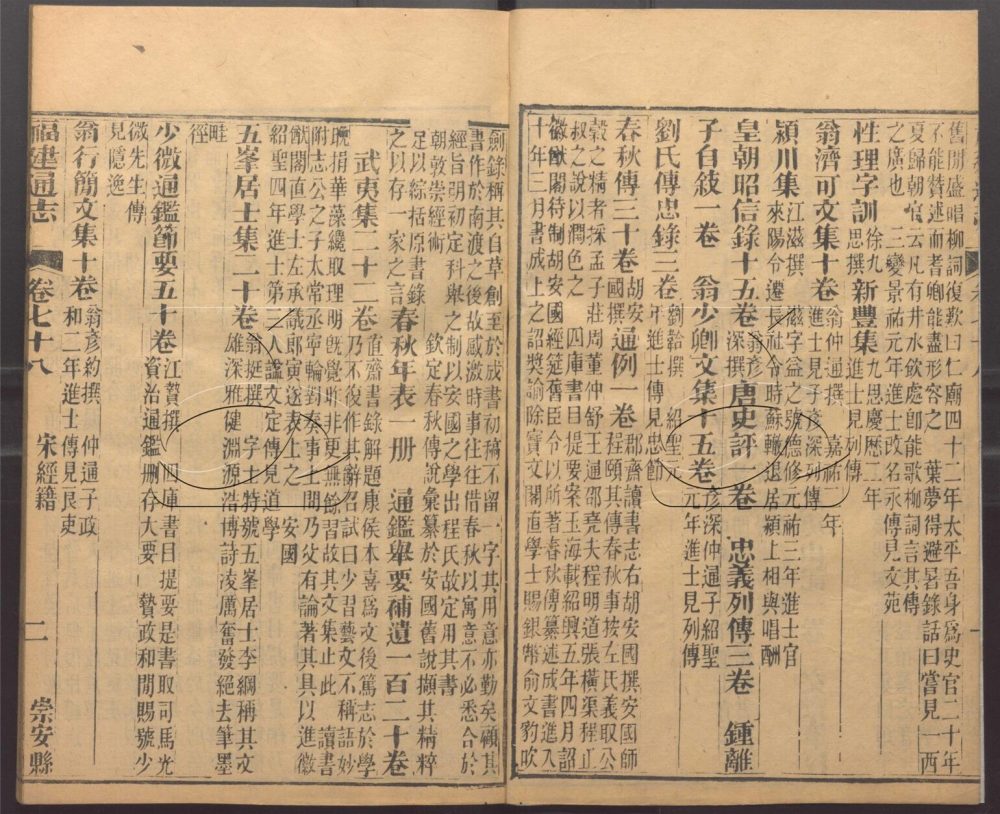 舊聞盛唱柳詞復歎曰仁廟四十二年太平吾身爲史官二十年
不能贊述而耆卿能盡形容之 葉夢得避暑錄話曰嘗見一西
夏歸朝官云凡有井水飲處卽能歌柳詞言其傳
之廣也 三變景祐元年進士改名永傳見文苑
性理字訓徐九思撰 新豐集九思慶歷二年進士見列傳
翁濟可文集十卷翁仲通撰 嘉祐二年進士見子彥深列傳
潁川集江滋撰 滋字益之號德修元祐三年進士官
來陽令遷長社令時蘇轍退居潁上相與唱酬
皇朝昭信錄十五卷翁彥深撰 唐史評一卷 忠義列傳三卷 鍾離
子自敍一卷 翁少卿文集十五卷彥深仲通子紹聖元年進士見列傳
劉氏傳忠錄三卷劉韐撰 紹聖元年進士傳見忠節
春秋傳三十卷胡安國撰 通例一卷郡齋讀書志右胡安國撰安國師
程頤其傳春秋事按左氏義取公
穀之精者採孟子莊周董仲舒王通邵堯夫程明道張橫渠程正
叔之說以潤色之 四庫書目提要案玉海載紹興五年四月詔
徽猷閣待制胡安國經筵舊臣令以所著春秋傳纂述成書進入
十年三月書成上之詔獎諭除寶文閣直學士賜銀幣俞文豹吹
劍錄稱其自草創至於成書初稿不留一字其用意亦勤矣顧其
書作於南渡之後故感激時事往往借春秋以寓意不必悉合於
經旨明初定科舉之制以安國之學出程氏故定用其書
朝敦崇經術 欽定春秋傳說彙纂於安國舊說擷其精粹
足以綜括原書錄
之以存一家之言 春秋年表一册 通鑑舉要補遺一百二十卷
武夷集二十二卷直齋書錄解題康侯本喜爲文後篤志於學
乃不復作其辭召試曰少習藝文不稱語妙
晚捐華藻纔取理明旣覬非更無餘習故其文集止此 讀書
附志公之子太常丞寧輪對奏事上問乃攵有論著其具以進徽
猷閣直學士左承議郎寅遂表上之 安國
紹聖四年進士第三人謚文定傳見道學
五峯居士集二十卷翁挺撰 字士特號五峯居士李綱稱其文
雄深雅健淵源浩博詩凌厲奮發絕去筆墨
畦徑
少微通鑑節要五十卷江贄撰 四庫書目提要是書取司馬光
資治通鑑刪存大要 贄政和閒賜號少
微先生傳
見隱逸
翁行簡文集十卷翁彥約撰 仲通子政
和二年進士傳見良吏
福建通志
卷七十八
宋經籍
二
崇安縣